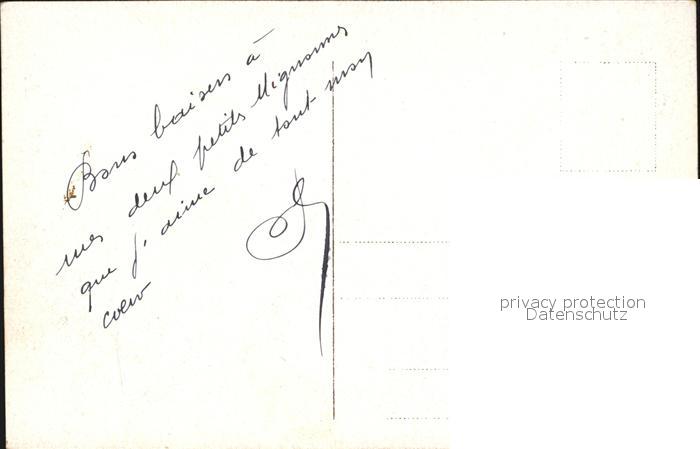 Bons baisers à
mes deux petits Mignons
que j'aime de tout mon
coeur
privacy protection
Datenschutz